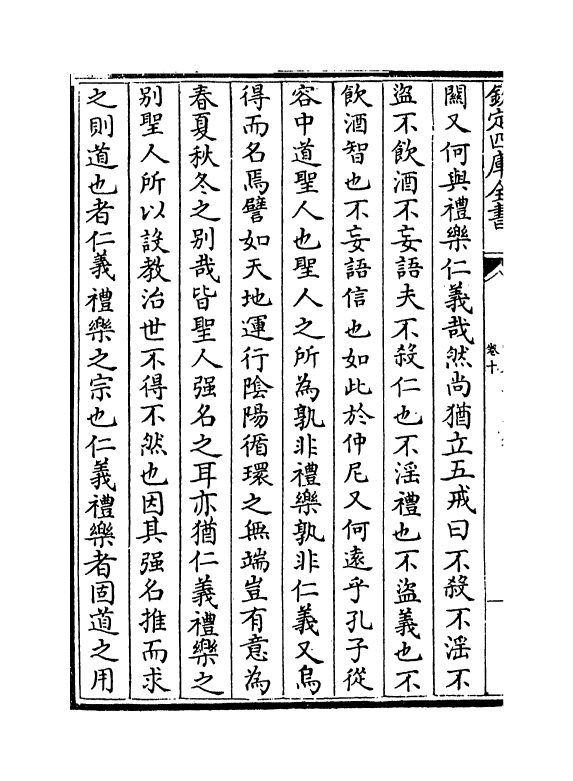 欽定四庫全書
卷十
關又何與禮樂仁義哉然尚猶立五戒曰不殺不淫不
盜不飲酒不妄語夫不殺仁也不淫禮也不盜義也不
飲酒智也不妄語信也如此於仲尼又何遠乎孔子從
容中道聖人也聖人之所為孰非禮樂孰非仁義又烏
得而名焉譬如天地運行陰陽循環之無端豈有意為
春夏秋冬之别哉皆聖人强名之耳亦猶仁義禮樂之
别聖人所以設教治世不得不然也因其强名推而求
之則道也者仁義禮樂之宗也仁義禮樂者固道之用